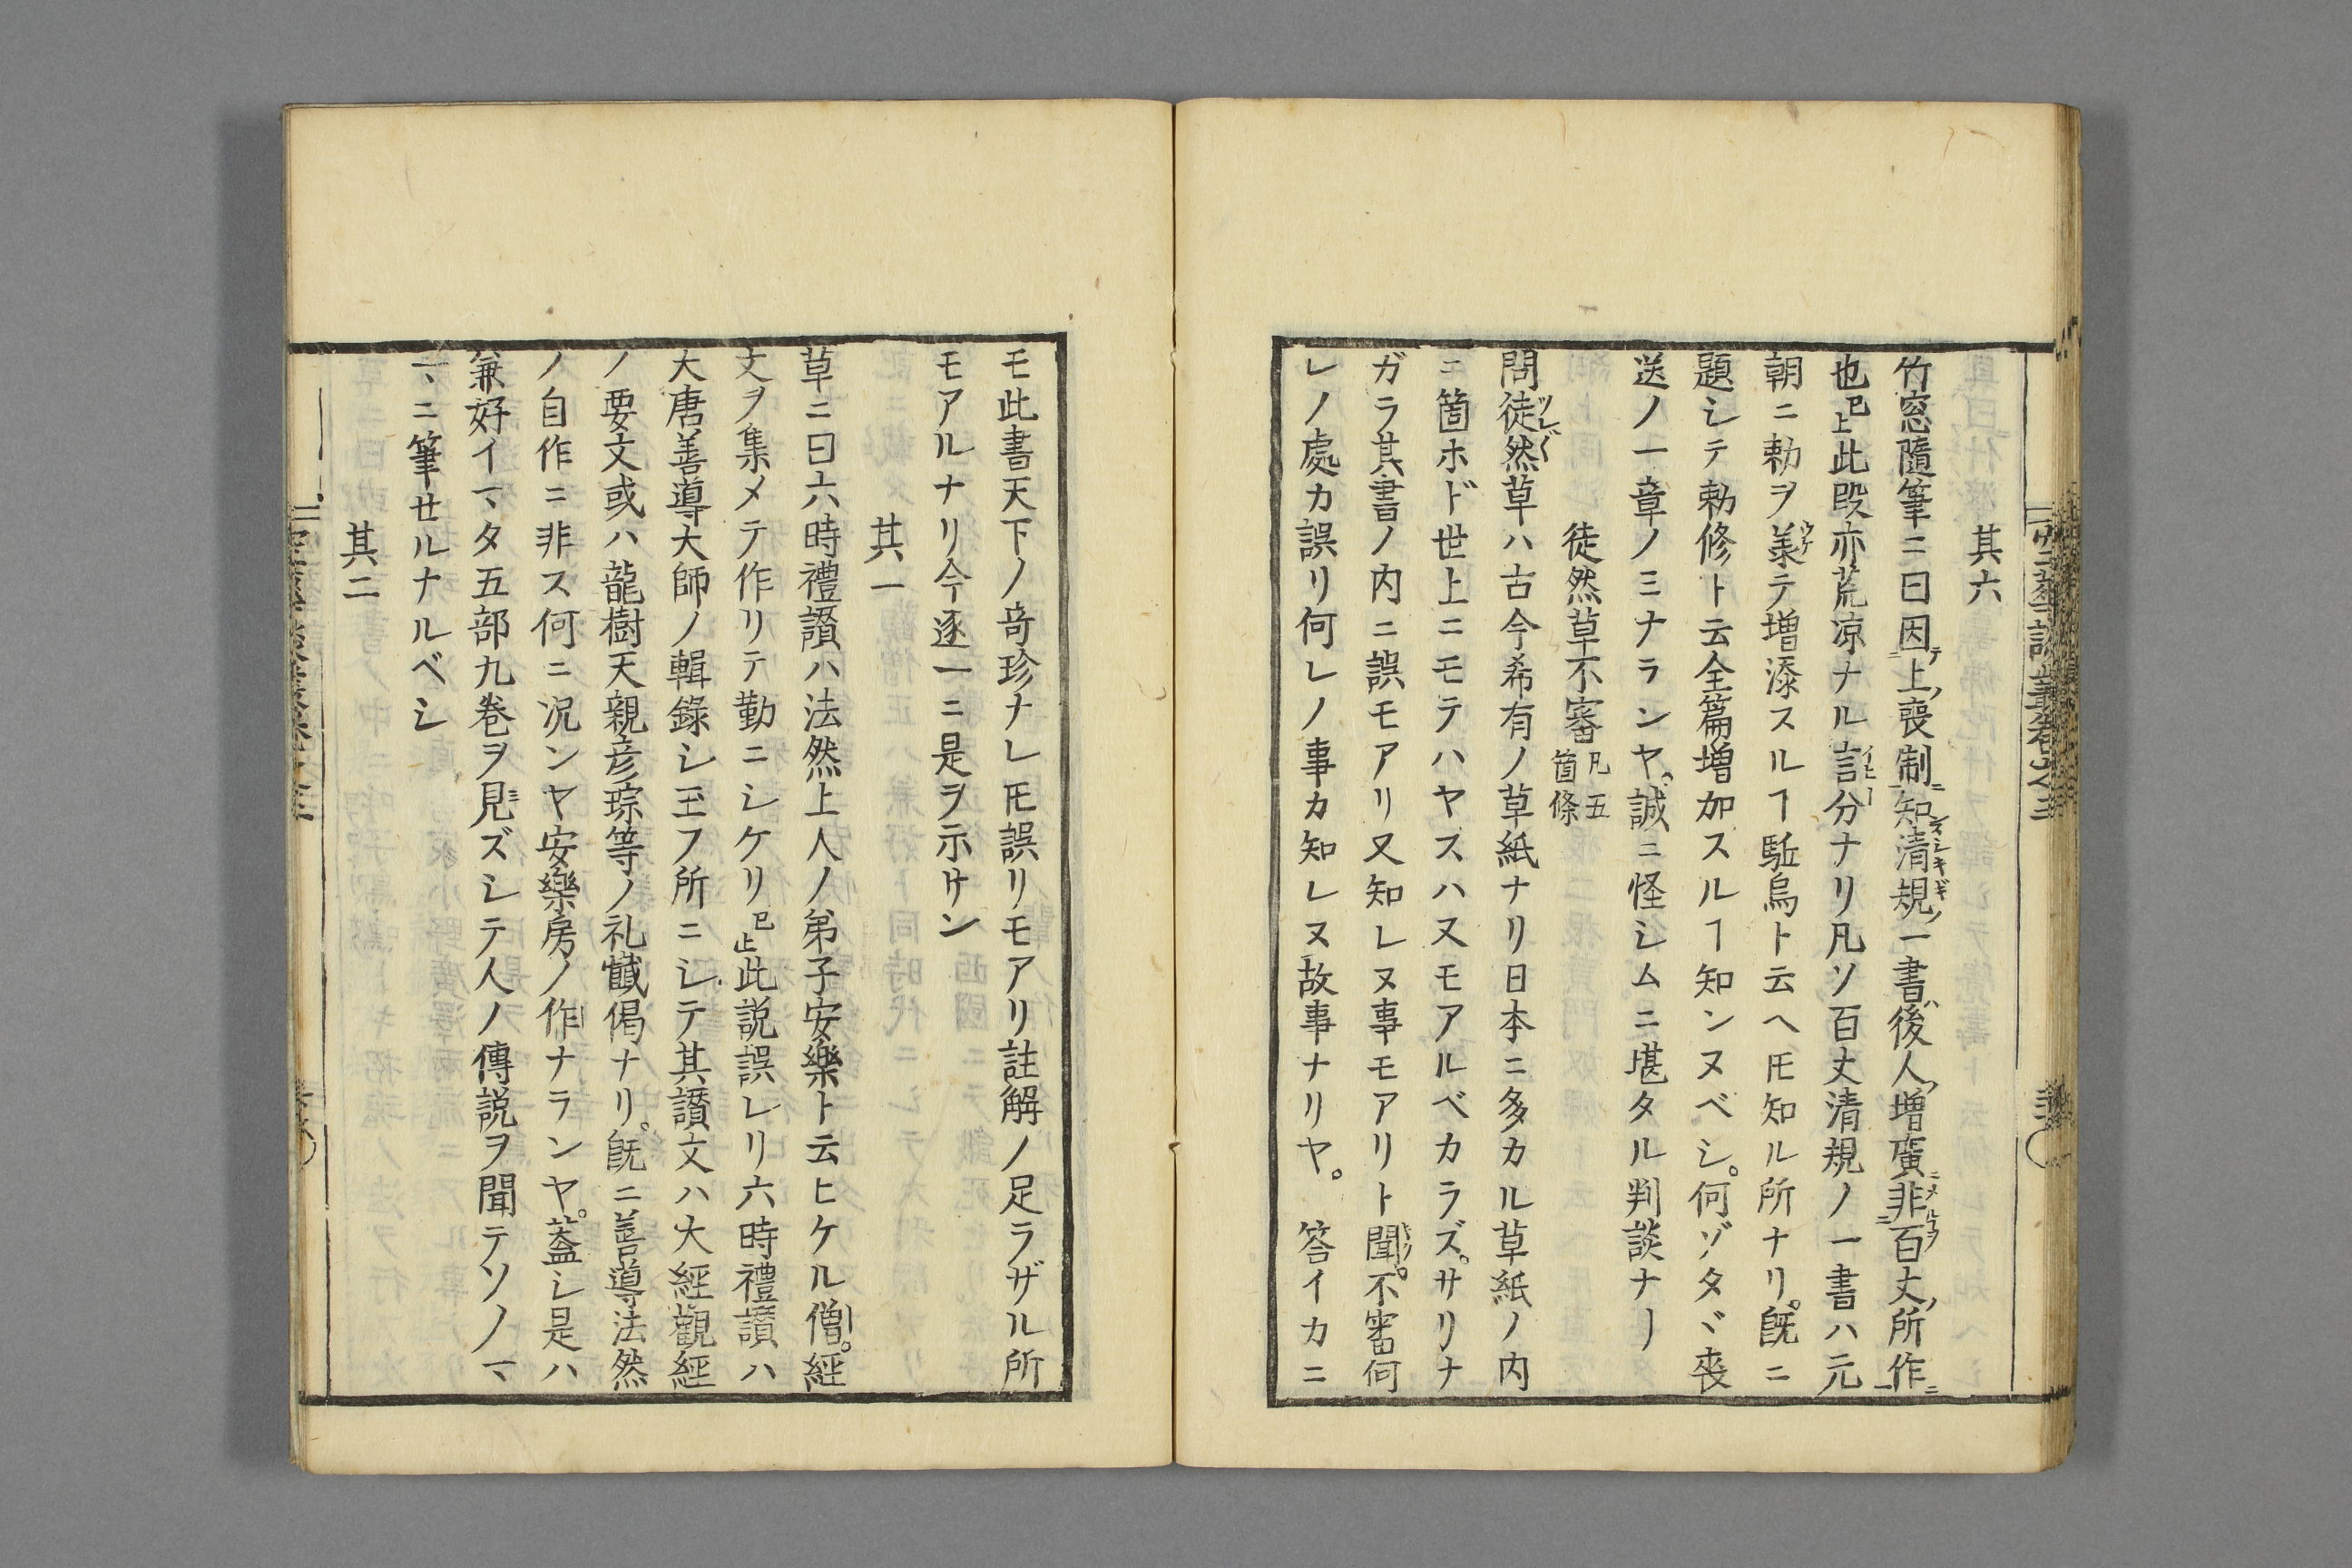 其六
竹窓隨筆ニ曰因上喪制知清規一書後人増廣非百丈所作
也已上此段亦荒凉ナル言分ナリ凡ソ百丈清規ノ一書ハ元
朝ニ勅ヲ羕テ増添スルヿ駈烏ト云ヘ𪜈知ル所ナリ。既ニ
題シテ勅修ト云全篇増加スルヿ知ンヌベシ。何ゾタヾ喪
送ノ一章ノミナランヤ。誠ニ怪シムニ堪タル判談ナ丨
徒然草不審凡五箇條
問徒然草ハ古今希有ノ草紙ナリ日本ニ多カル草紙ノ内
ニ箇ホド世上ニモテハヤスハ又モアルベカラズ。サリナ
ガラ其書ノ内ニ誤モアリ又知レヌ事モアリト聞。不審何
レノ處カ誤リ何レノ事カ知レヌ故事ナリヤ。 答イカニ
モ此書天下ノ奇珍ナレ𪜈誤リモアリ註解ノ足ラザル所
モアルナリ今逐一ニ是ヲ示サン
其一
草ニ曰六時禮讃ハ法然上人ノ弟子安樂ト云ヒケル僧。經
文ヲ集メテ作リテ勤ニシケリ已上此説誤レリ六時禮讃ハ
大唐善導大師ノ輯錄シ玉フ所ニシテ其讃文ハ大經觀經
ノ要文或ハ龍樹天親彦琮等ノ礼懺偈ナリ。既ニ善導法然
ノ自作ニ非ス何ニ况ンヤ安樂房ノ作ナランヤ。蓋シ是ハ
兼好イマヽタ五部九巻ヲ見ズシテ人ノ傳説ヲ聞テソノマ
マヽニ筆セルナルベシ
其二